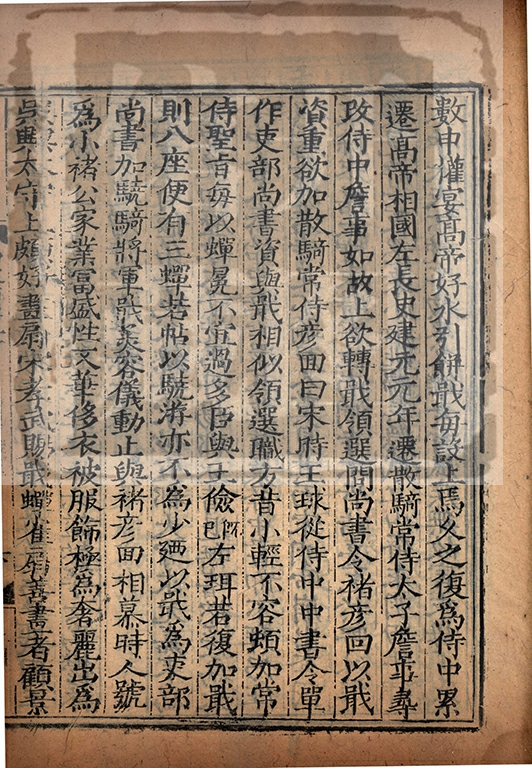 數申懽宴髙帝好水引餅戢每設上焉久之復爲侍中累
遷髙帝相國左長史建元元年遷散騎常侍太子詹事尋
攺侍中詹事如故上欲轉戢領選問尚書令褚彦回以戢
資重欲加散騎常侍彦回曰宋時王球從侍中中書令單
作吏部尚書資與戢相似領選職方昔小輕不容頓加常
侍聖旨每以蟬冕不宜過多臣與王儉旣已左珥若復加戢
則八座便有三蟬若帖以驍游亦不爲少廼以戢爲吏部
尚書加驍騎將軍戢美容儀動止與褚彦回相慕時人號
爲小褚公家業富盛性又華侈衣被服飾極爲奢麗出爲
吳興太守上頗好畫扇宋孝武賜戢蟬雀扇善書者顧景